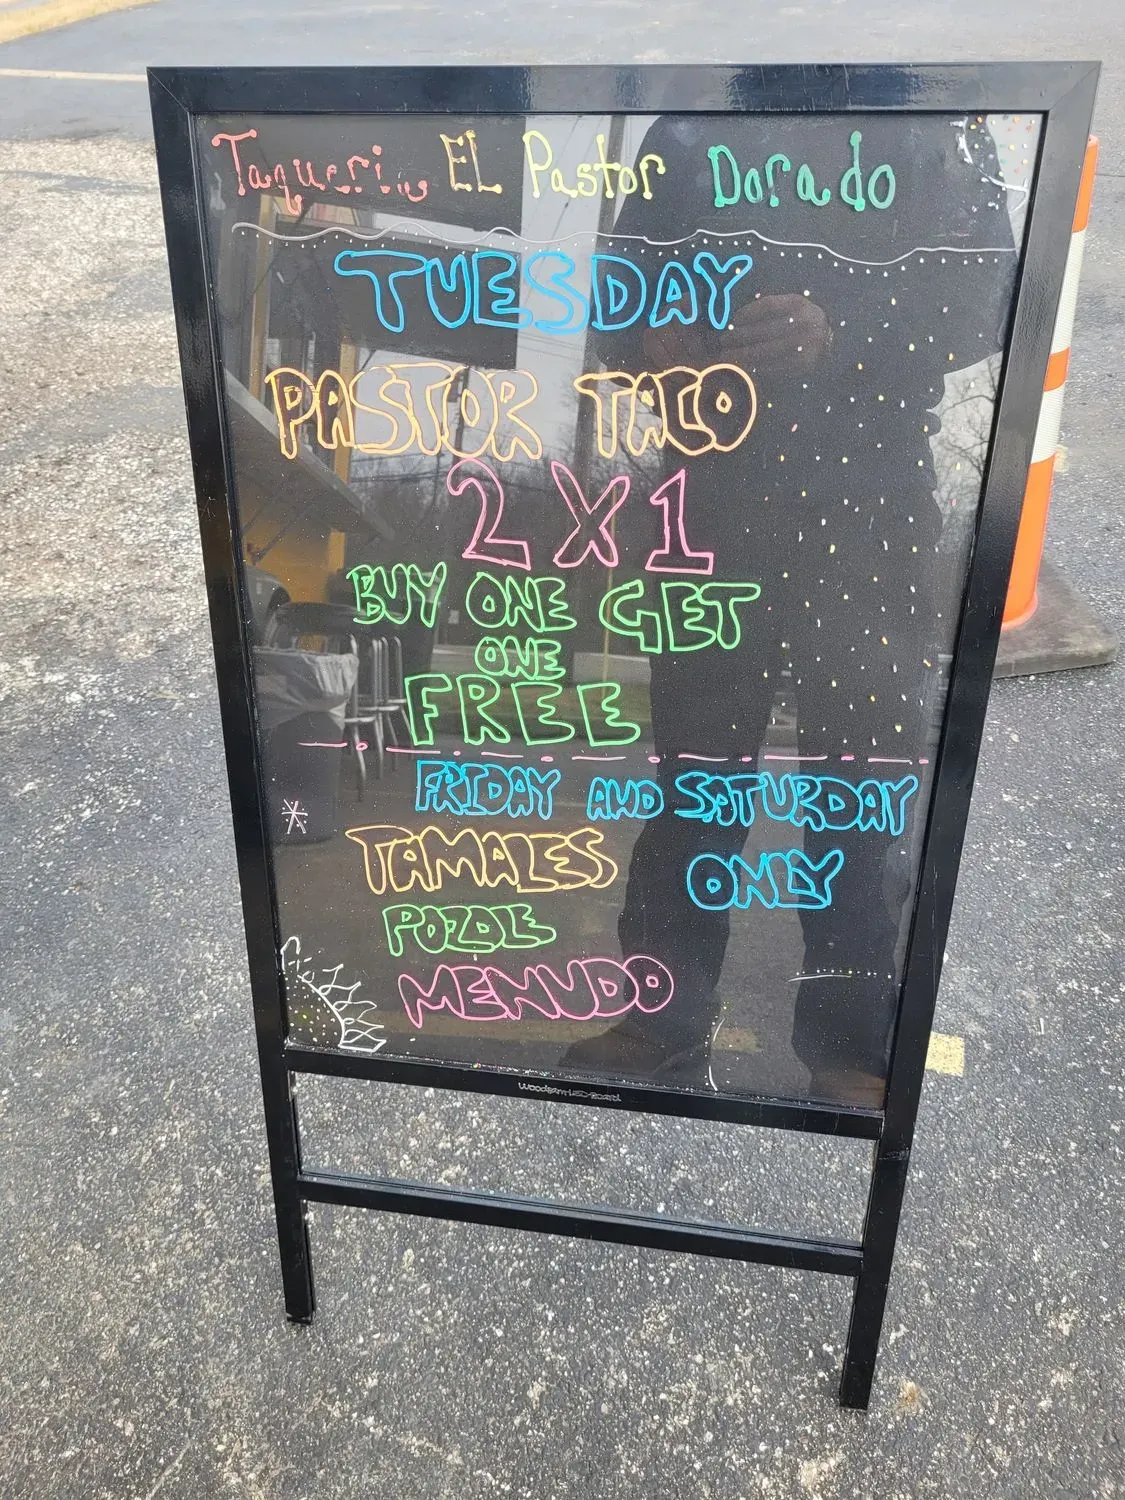 Taqueria EL Pastor Dorado
TUESDAY
PASTOR TACO
2 X 1
BUY ONE GET
ONE
FREE
FRIDAY AND SATURDAY
ONLY
TAMALES
POZOLE
MENUDO